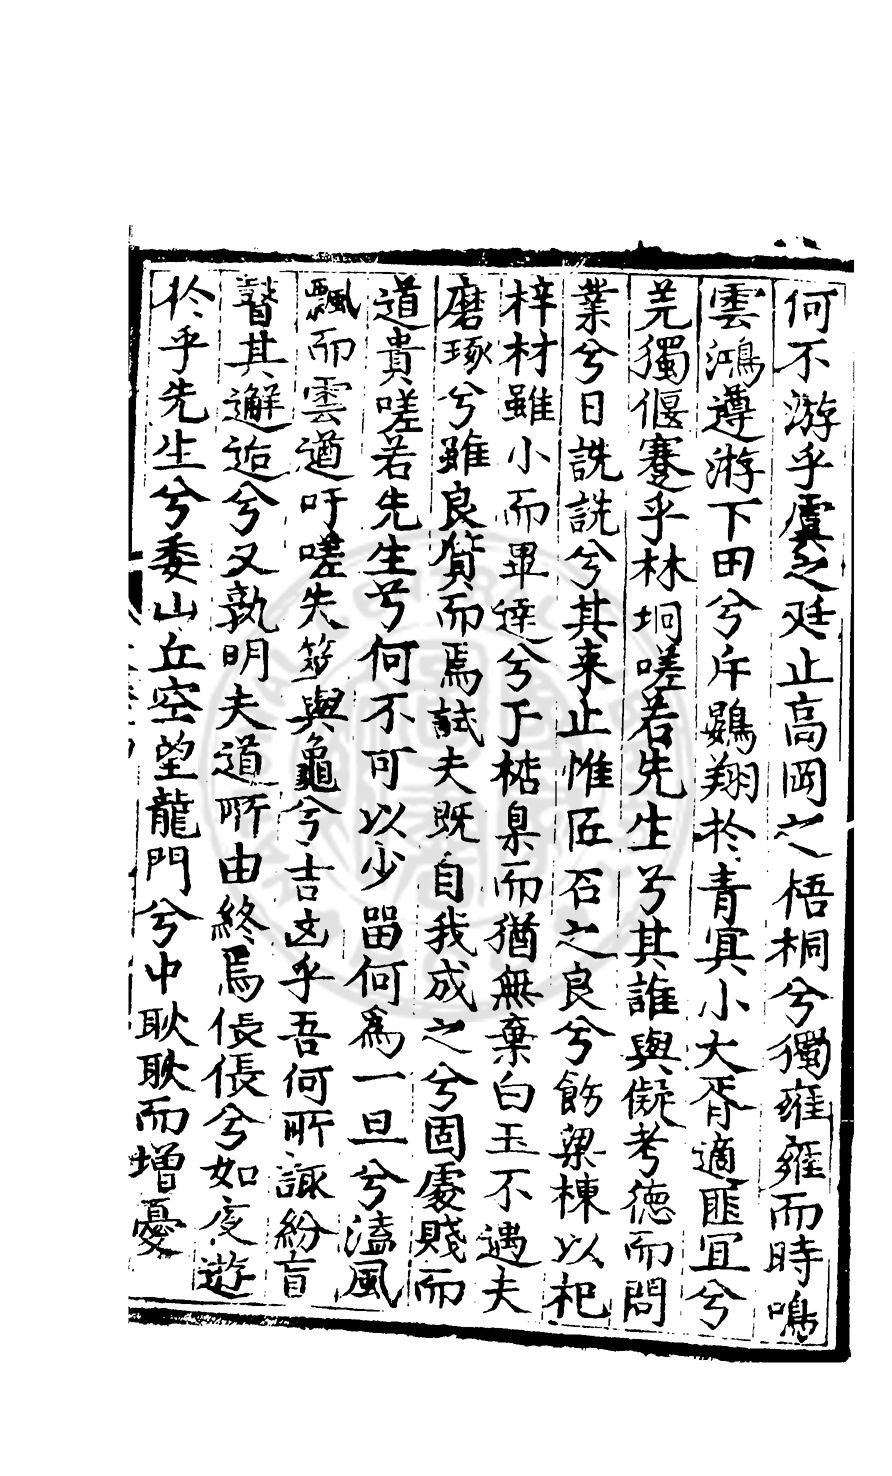 何不游乎虞之廷止高岡之梧桐兮獨雍雍而時鳴
雲鴻遵游下田兮斥鷃翔於青冥小大胥適匪宜兮
羌獨偃蹇乎林坰嗟若先生兮其誰與儗考德而問
業兮日詵詵兮其来止惟匠石之良兮飭梁棟以杞
梓材雖小而畢達兮于楛臬而猶無棄白玉不遇夫
磨琢兮雖良貨而焉試夫既自我成之兮固處賤而
道貴嗟若先生兮何不可以少留何爲一旦兮溘風
飄而雲遒吁嗟失筮與龜兮吉凶乎吾何所諏紛盲
瞽其邂逅兮又孰明夫道所由終焉倀倀兮如夜遊
於乎先生兮委山丘空望龍門兮中耿耿而增憂